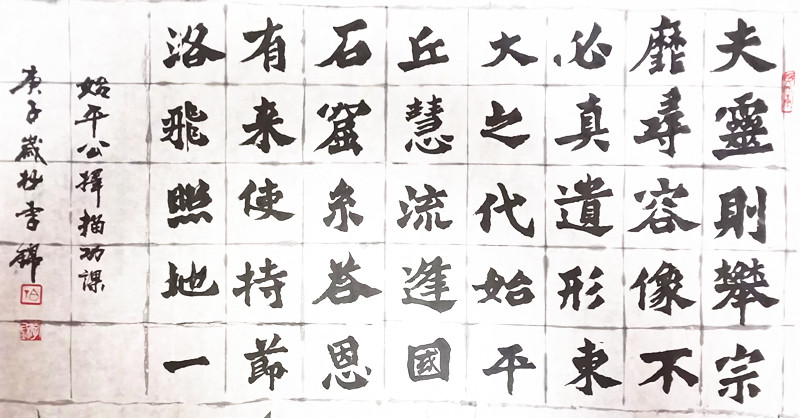 夫靈則攀宗
靡尋容像不
必真遺形東
大之代始平
丘慧流逢國
石窟糸荅恩
有来使持節
洛飛照地一
始平公擇描功課
庚子歲抄李錦